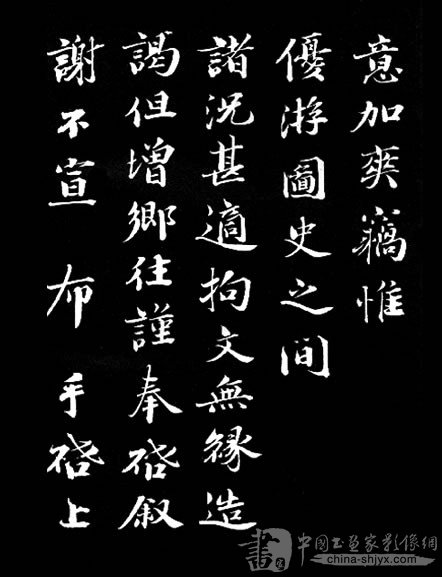 意加爽竊惟
優游圖史之間
諸況甚適拘文無緣造
謁但增鄉往謹奉啓叙
謝不宣 布 手啓上
書 中國书画家影像網
china-shjyx.com